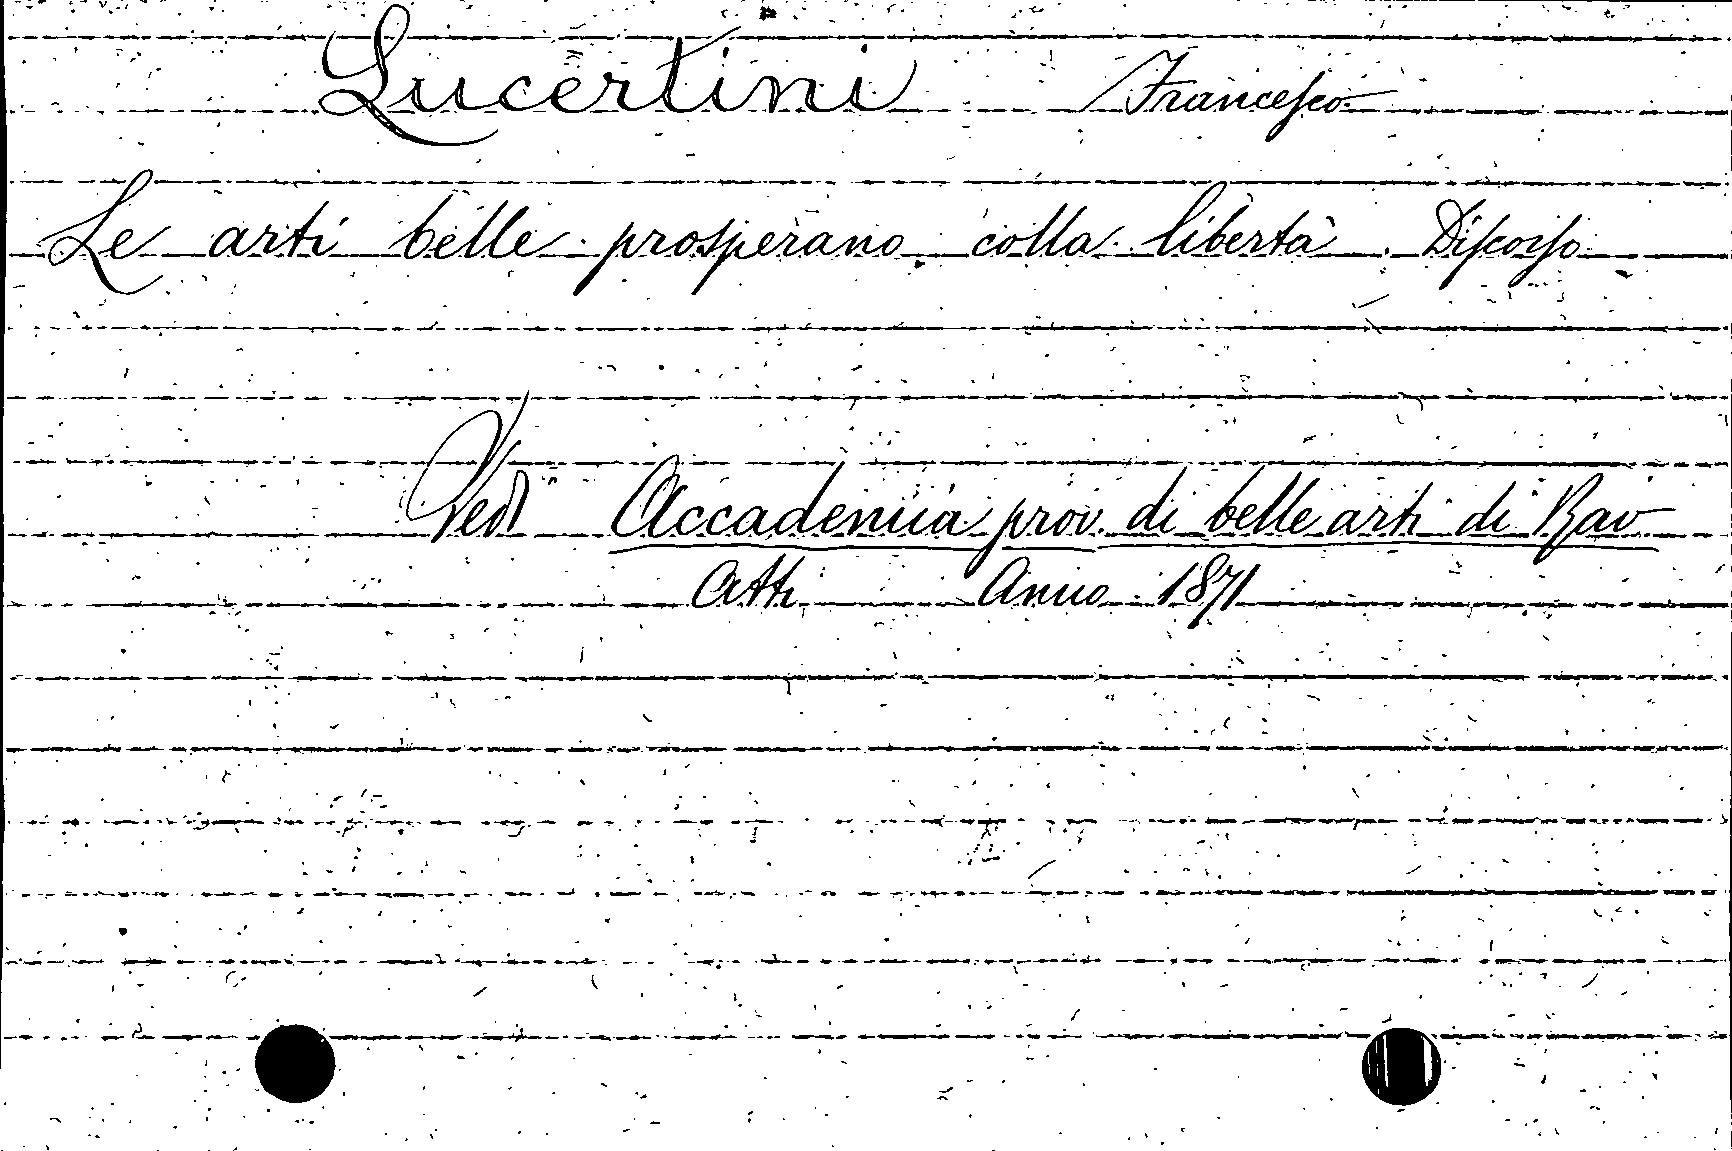 Lucertini Francesco
Le arti belle prosperano colla libertà. Discorso
Vedi Accademia prov. di belle arti di Rav
Atti Anno 1871